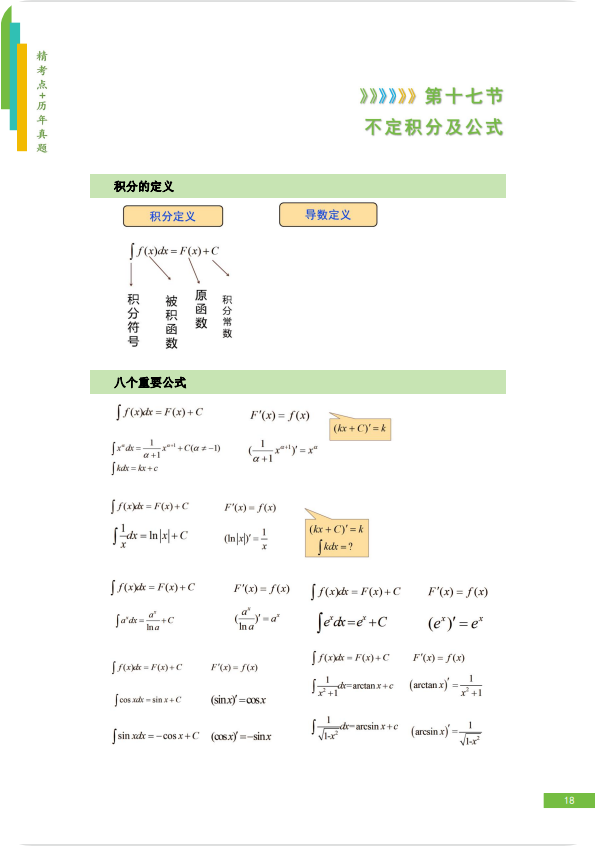 精考点+历年真题
第十七节
不定积分及公式
积分的定义
积分定义
导数定义
∫ f(x)dx = F(x) + C
积分符号
被积函数
原函数
积分常数
八个重要公式
∫ f(x)dx = F(x) + C
F′(x) = f(x)
(kx + C)′ = k
∫ x^α dx = 1/(α+1) x^(α+1) + C(α ≠ −1)
(1/(α+1) x^(α+1))′ = x^α
∫ kdx = kx + c
∫ f(x)dx = F(x) + C
F′(x) = f(x)
∫ 1/x dx = ln|x| + C
(ln|x|)′ = 1/x
(kx + C)′ = k
∫ kdx = ?
∫ f(x)dx = F(x) + C
F′(x) = f(x)
∫ a^x dx = a^x/ln a + C
(a^x/ln a)′ = a^x
∫ f(x)dx = F(x) + C
F′(x) = f(x)
∫ e^x dx = e^x + C
(e^x)′ = e^x
∫ f(x)dx = F(x) + C
F′(x) = f(x)
∫ cos xdx = sin x + C
(sin x)′ = cos x
∫ sin xdx = −cos x + C
(cos x)′ = −sin x
∫ f(x)dx = F(x) + C
F′(x) = f(x)
∫ 1/(x²+1) dx = arctan x + c
(arctan x)′ = 1/(x²+1)
∫ 1/√(1-x²) dx = arcsin x + c
(arcsin x)′ = 1/√(1-x²)
18